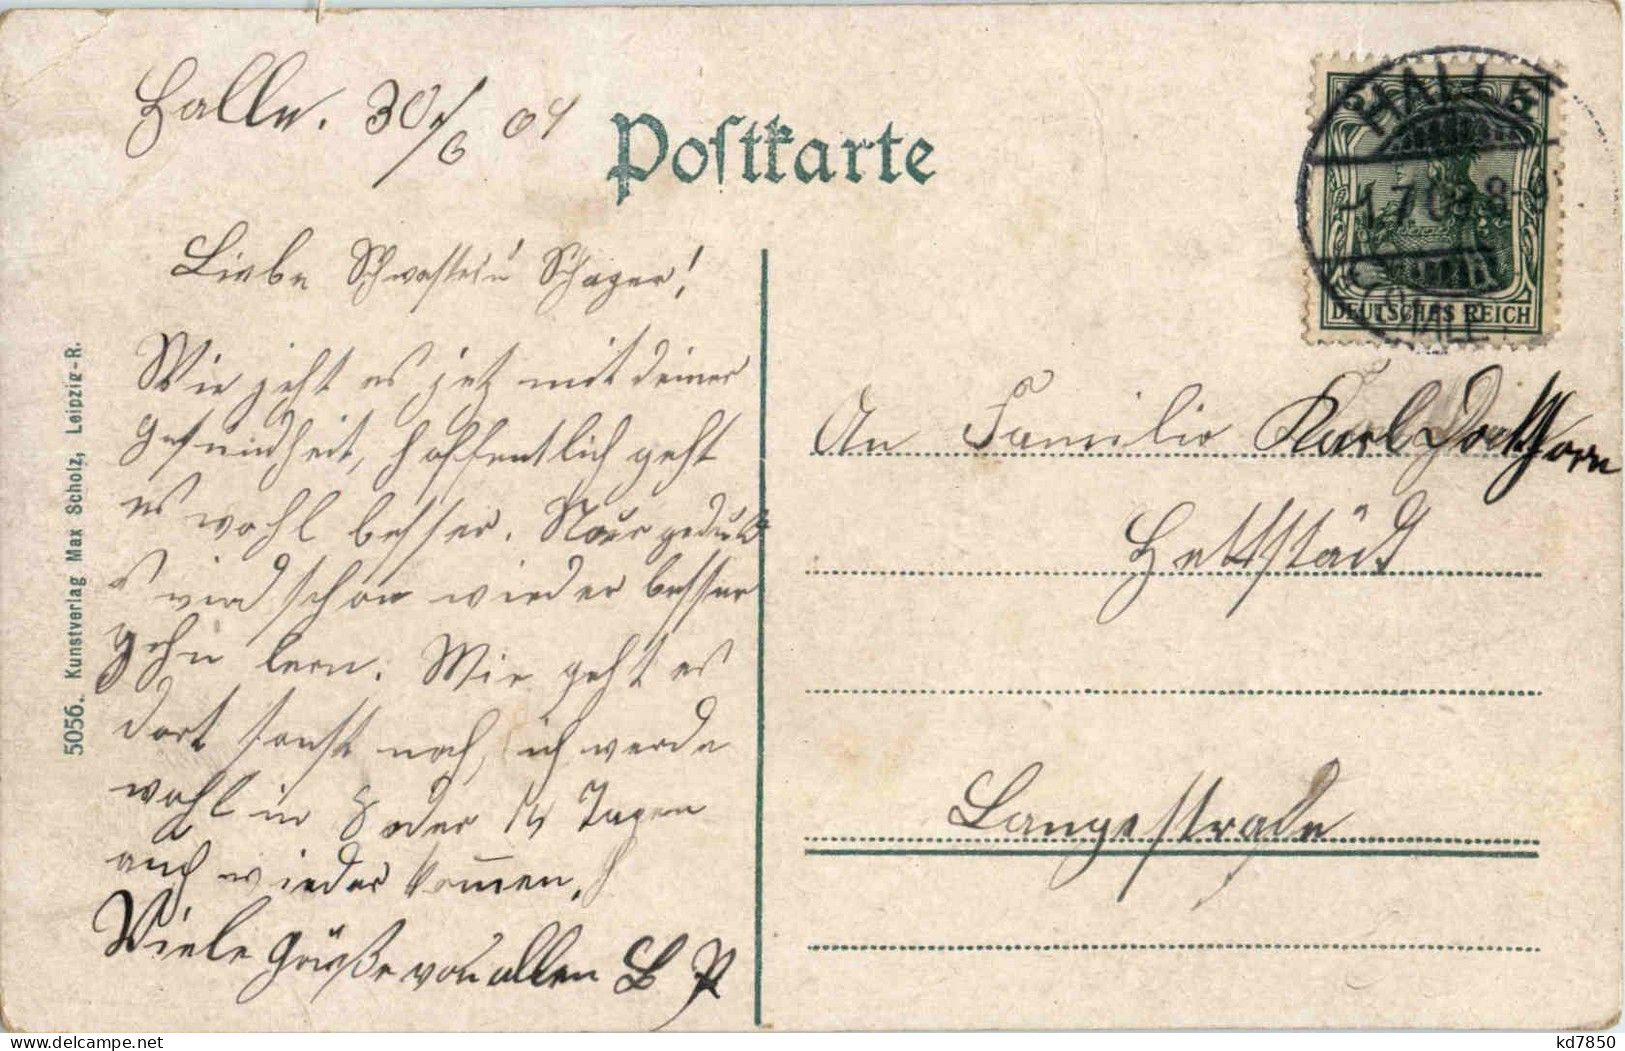 Halle. 30/6 09
Postkarte
HALLE
1.7.09.8-9
(SAALE)
DEUTSCHES REICH
Liebe Schwester u Schager!
Wie geht es jetz mit deiner
gesundheit, hoffentlich geht
es wohl besser. Nour geduld
es wird schon wieder besser
gehn lern. Wie geht es
dort sonst noch, ich werde
wohl in 8 oder 14 Tagen
auch wieder kommen.
Viele Grüße von allen
5056. Kunstverlag Max Scholz, Leipzig-R.
An Familie Karl
Hettstädt
Langestraße
kd7850